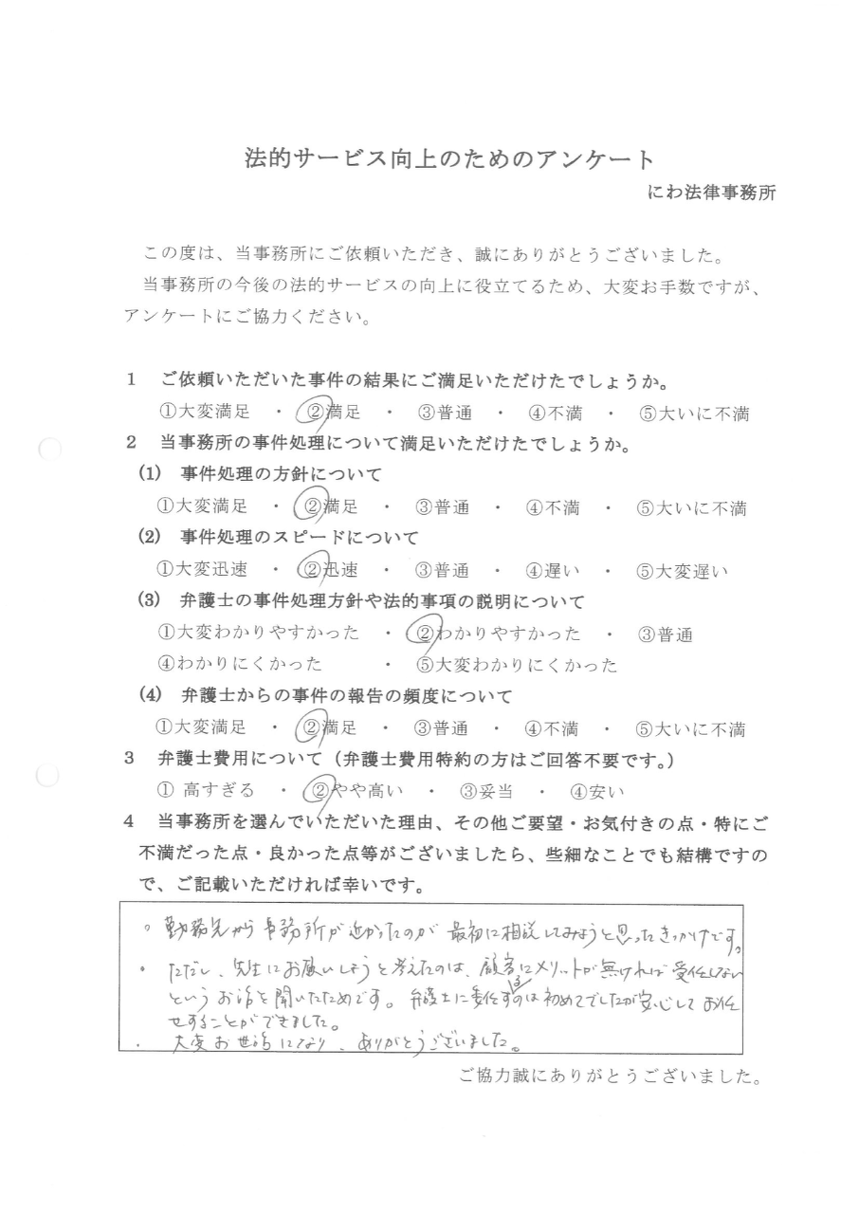 法的サービス向上のためのアンケート
にわ法律事務所
この度は、当事務所にご依頼いただき、誠にありがとうございました。
当事務所の今後の法的サービスの向上に役立てるため、大変お手数ですが、
アンケートにご協力ください。
1 ご依頼いただいた事件の結果にご満足いただけたでしょうか。
①大変満足 ・ ②満足 ・ ③普通 ・ ④不満 ・ ⑤大いに不満
2 当事務所の事件処理について満足いただけたでしょうか。
(1) 事件処理の方針について
①大変満足 ・ ②満足 ・ ③普通 ・ ④不満 ・ ⑤大いに不満
(2) 事件処理のスピードについて
①大変迅速 ・ ②迅速 ・ ③普通 ・ ④遅い ・ ⑤大変遅い
(3) 弁護士の事件処理方針や法的事項の説明について
①大変わかりやすかった ・ ②わかりやすかった ・ ③普通
④わかりにくかった ・ ⑤大変わかりにくかった
(4) 弁護士からの事件の報告の頻度について
①大変満足 ・ ②満足 ・ ③普通 ・ ④不満 ・ ⑤大いに不満
3 弁護士費用について（弁護士費用特約の方はご回答不要です。）
① 高すぎる ・ ②やや高い ・ ③妥当 ・ ④安い
4 当事務所を選んでいただいた理由、その他ご要望・お気付きの点・特にご
不満だった点・良かった点等がございましたら、些細なことでも結構ですの
で、ご記載いただければ幸いです。
。勤務先から事務所が近かったのが 最初に相談してみようと思ったきっかけです。
・ ただし、先生にお願いしようと考えたのは、顧客にメリットが無ければ受任しない
というお話を聞いたためです。弁護士に委任するのは初めてでしたが安心してお任
せすることができました。
・ 大変お世話になり、ありがとうございました。
ご協力誠にありがとうございました。